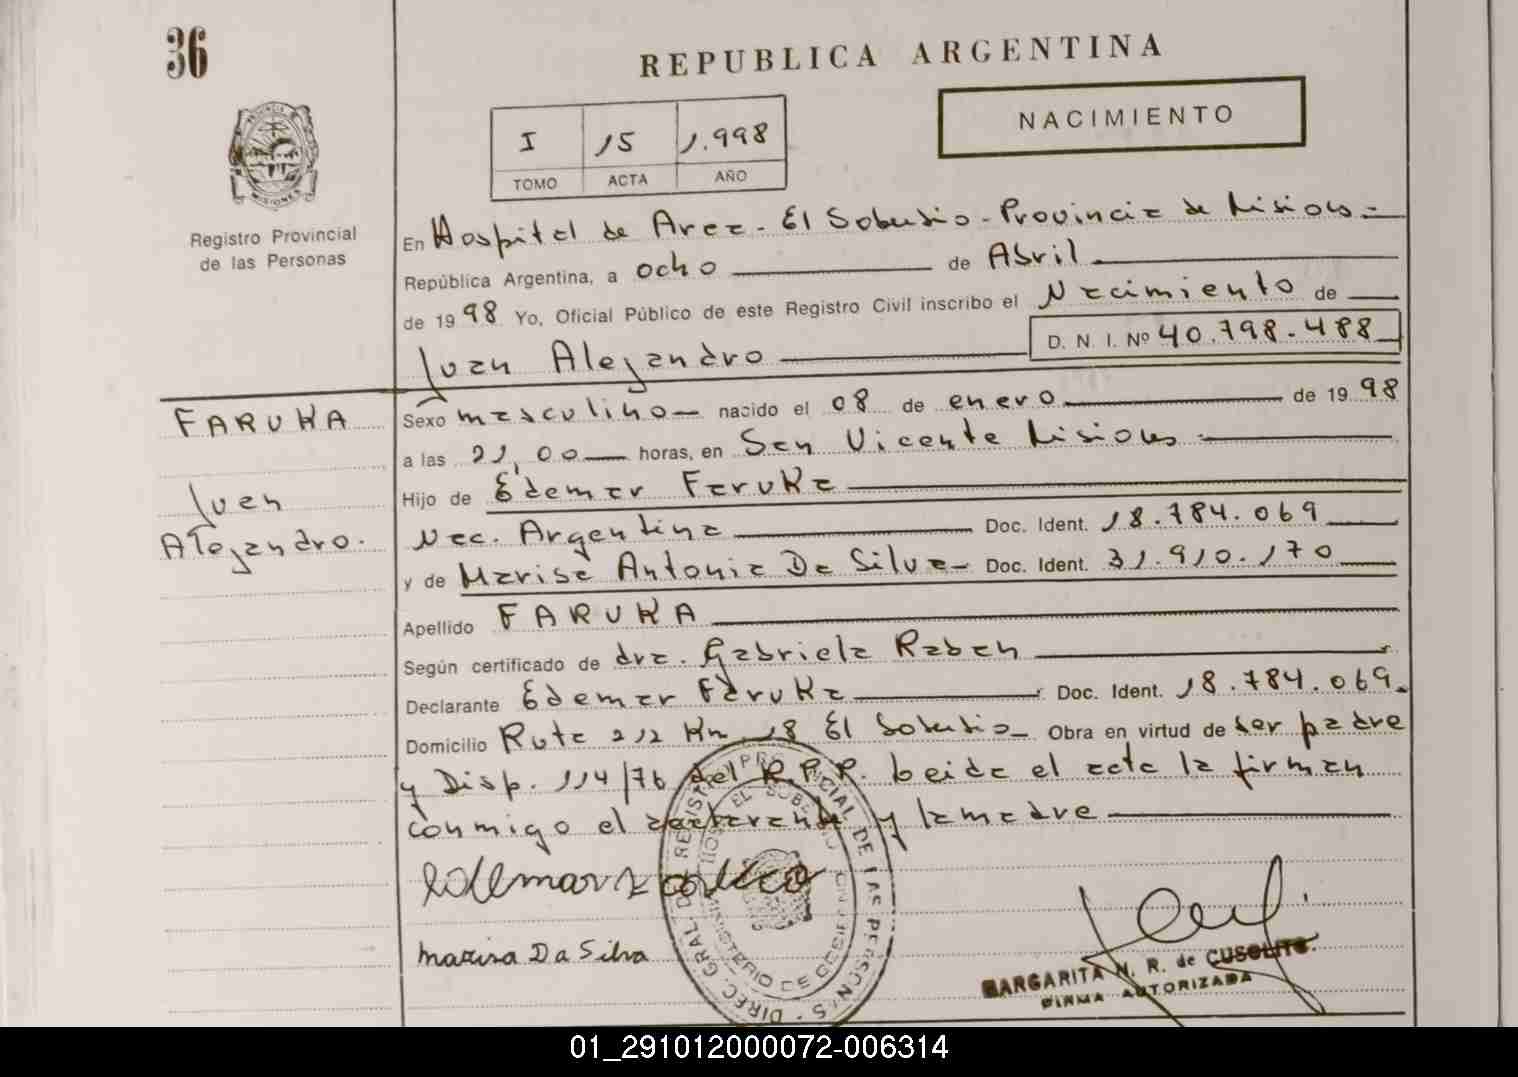 36
REPUBLICA ARGENTINA
NACIMIENTO
I 15 1.998
TOMO ACTA AÑO
PROVINCIA DE MISIONES
Registro Provincial
de las Personas
En Hospital de Area - El Soberbio - Provincia de Misiones
República Argentina, a ocho de Abril
de 1998 Yo, Oficial Público de este Registro Civil inscribo el Nacimiento de
Juan Alejandro D. N. I. Nº 40.798.488
FARUKA
Juan
Alejandro.
Sexo masculino nacido el 08 de enero de 1998
a las 21,00 horas, en San Vicente Misiones
Hijo de Edemar Faruka
Nac. Argentina Doc. Ident. 18.784.069
y de Marisa Antonia Da Silva Doc. Ident. 31.910.170
Apellido FARUKA
Según certificado de dra. Gabriela Raban
Declarante Edemar Faruka Doc. Ident. 18.784.069.
Domicilio Ruta 212 Km 18 El Soberbio Obra en virtud de ser padre
y Disp. 114/76 del R.P.P. leida el acta la firman
conmigo el declarante y la madre
Edemar
Marisa Da Silva
DIREC. GRAL. DE REGISTRO PROVINCIAL DE LAS PERSONAS
MINISTERIO DE GOBIERNO
MARGARITA N. R. de CUSOLITO
FIRMA AUTORIZADA
01_291012000072-006314